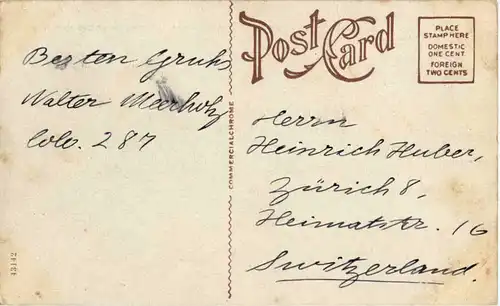 Post Card
PLACE
STAMP HERE
DOMESTIC
ONE CENT
FOREIGN
TWO CENTS
Besten Gruhs
Walter Meerholz
Colo. 287
COMMERCIALCHROME
Herrn
Heinrich Huber,
Zürich 8,
Heimatstr. 16
Switzerland.
43142